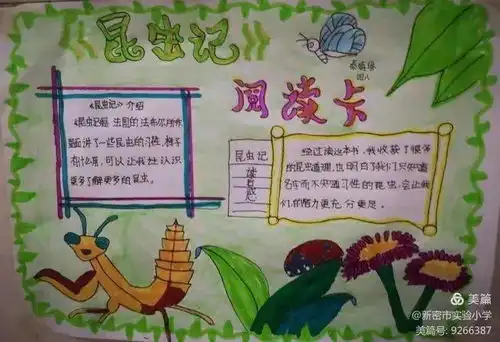 《昆虫记》
阅读卡
四八
《昆虫记》介绍
《昆虫记》是法国的法布尔所作
里面讲了一些昆虫的习性,椿子
有很多,可以让我们认识
更多了解更多的昆虫。
昆虫记
读后感
经过读这本书,我收获了很多
的昆虫道理,也明白了我们只知道
名字而不知道习性的昆虫,会让我
们的智力更充分更足。
美篇
@新密市实验小学
美篇号: 9266387